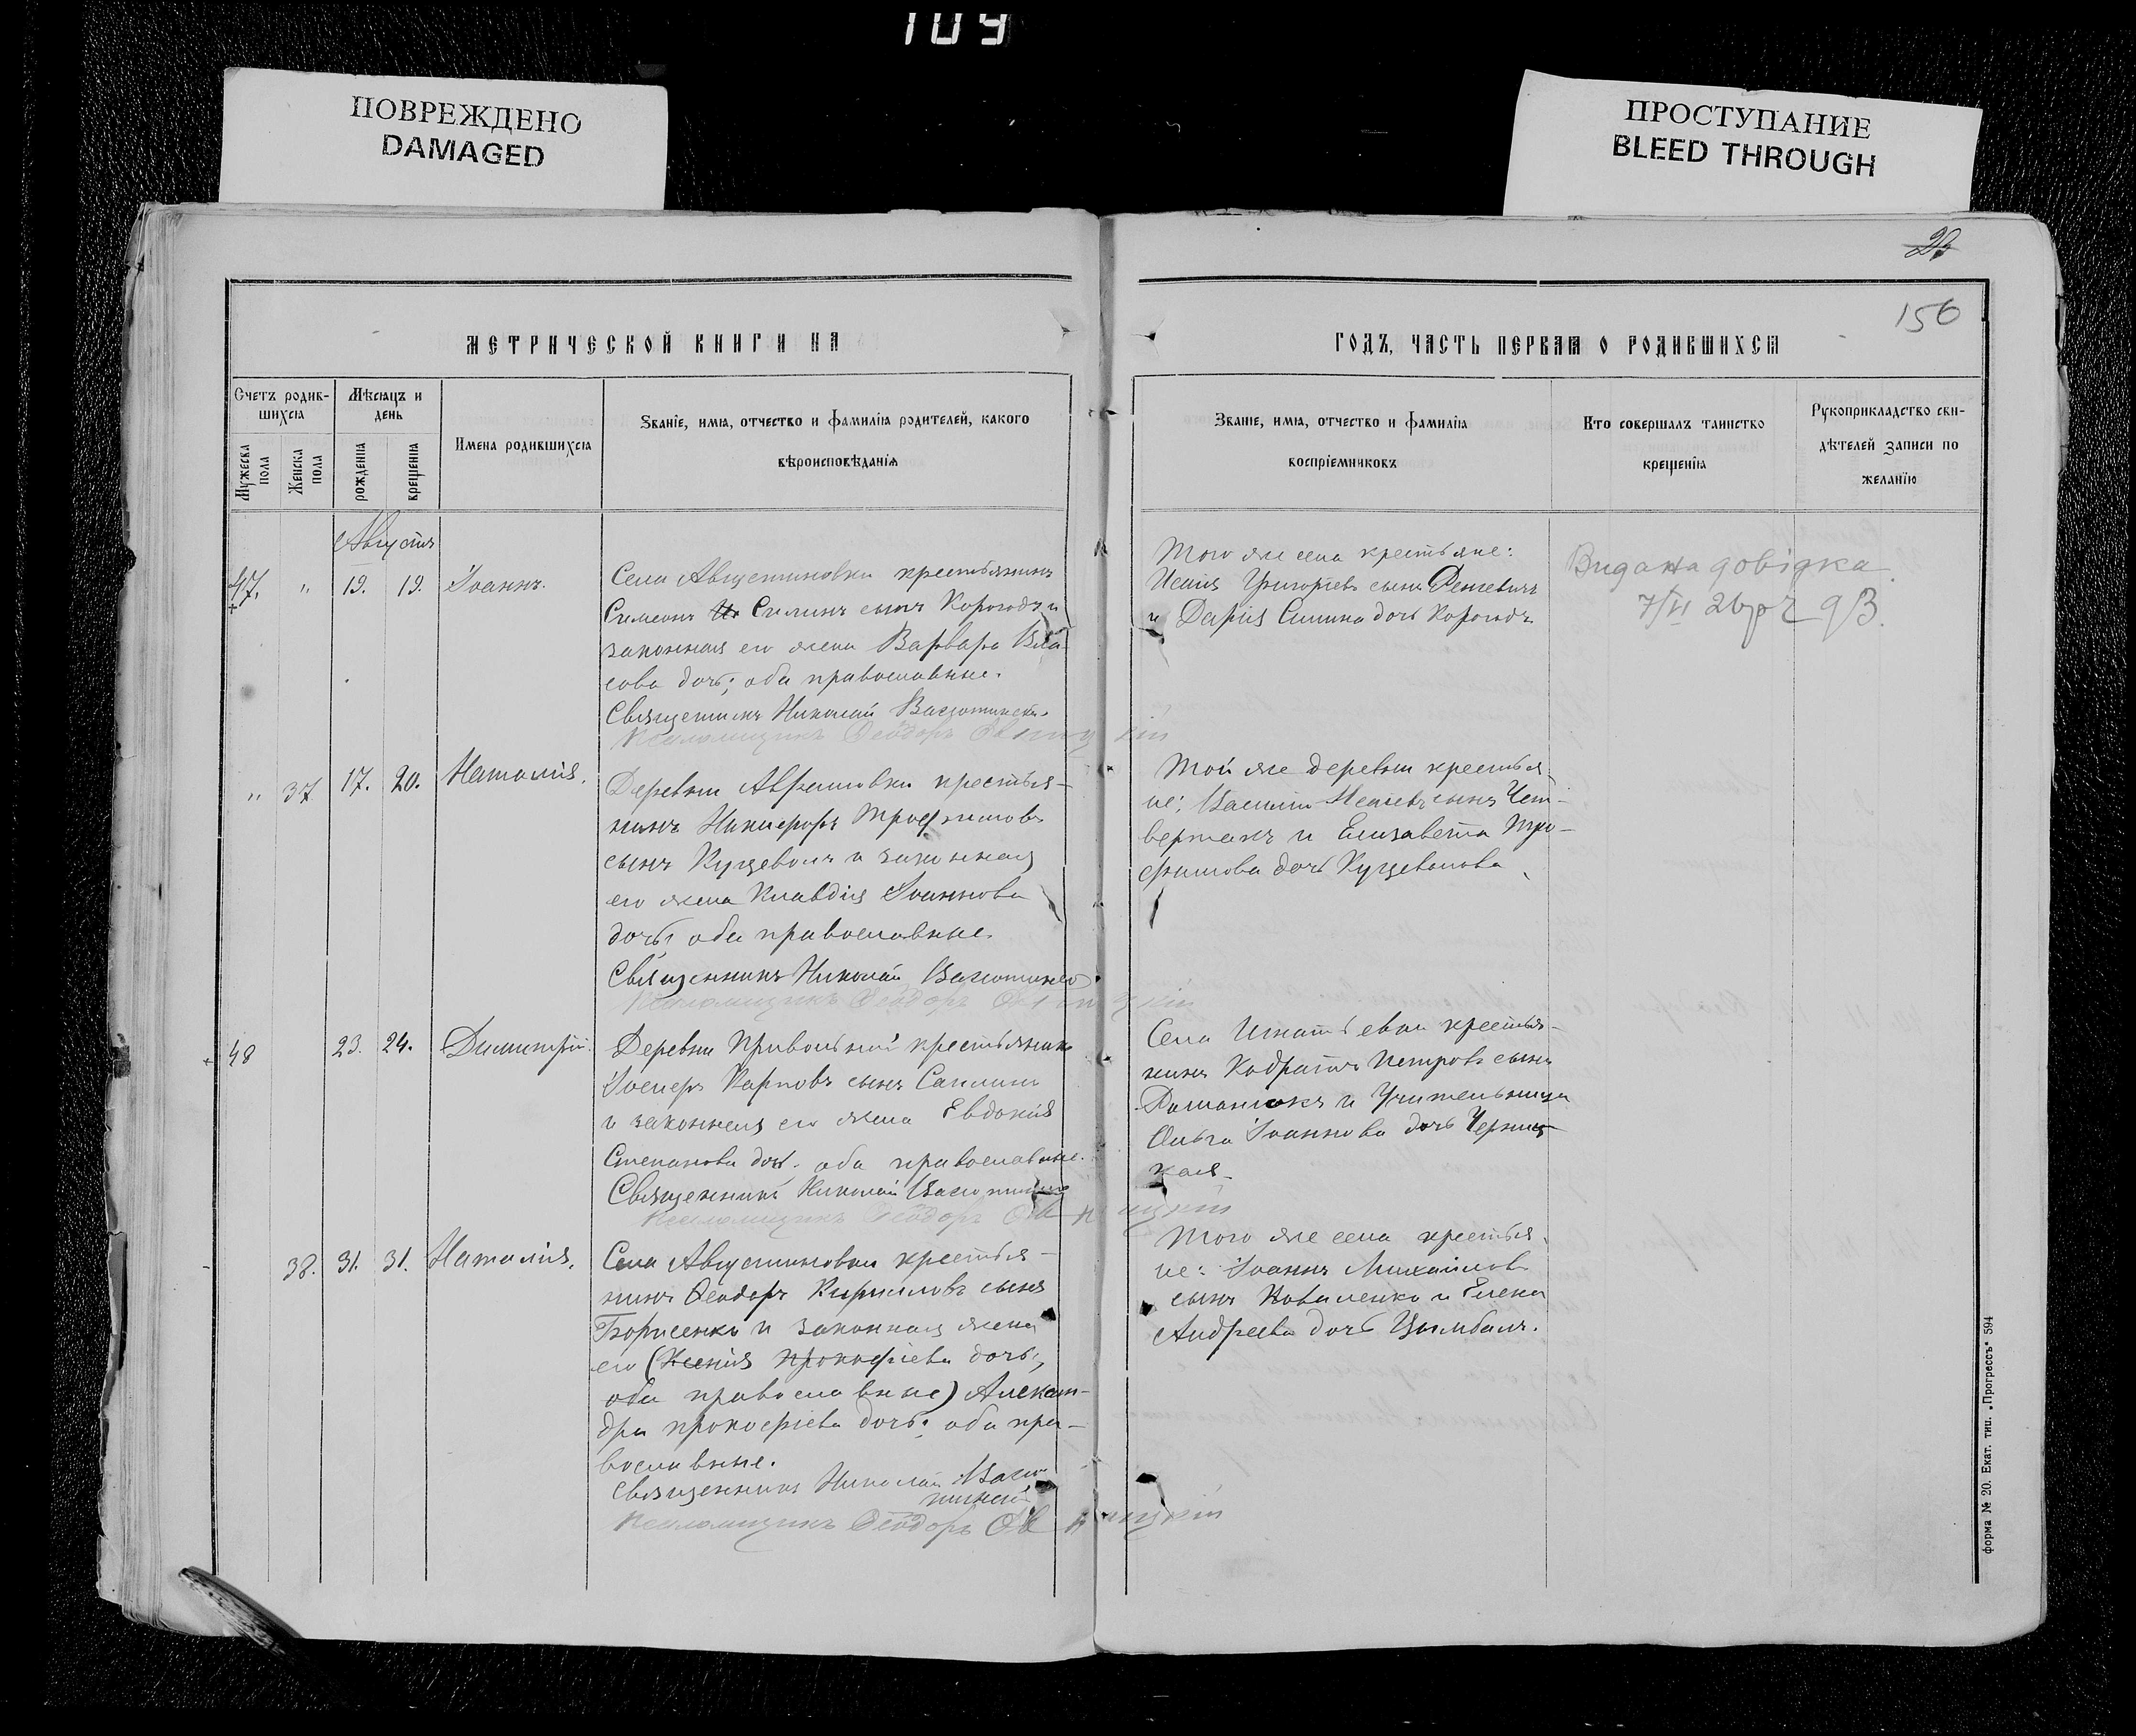 109
ПОВРЕЖДЕНО
DAMAGED
ПРОСТУПАНИЕ
BLEED THROUGH
156
МЕТРИЧЕСКОЙ КНИГИ НА
ГОДЪ, ЧАСТЬ ПЕРВАЯ О РОДИВШИХСЯ
Счетъ родив-
шихся
Мужеска пола
Женска пола
Мѣсяцъ и
день
рожденія
крещенія
Имена родившихся
Званіе, имя, отчество и фамилія родителей, какого
вѣроисповѣданія
Званіе, имя, отчество и фамилія
воспріемниковъ
Кто совершалъ таинство
крещенія
Рукоприкладство сви-
дѣтелей записи по
желанію
Августъ
47. " 19. 19. Іоаннъ.
Села Августиновки крестьянинъ
Симеонъ Силинъ сынъ Корогодъ и
законная его жена Варвара Вла
сова дочь; оба православные.
Священникъ Николай
Псаломщикъ Ѳеодоръ
Того же села крестьяне:
Григоріевъ сынъ
и Дарія Силина дочь Корогодъ
Видана довідка
" 37 17. 20. Наталія.
Деревни крестья-
нинъ Никифоръ Трофимовъ
сынъ и законная
его жена Клавдія Іоаннова
дочь, оба православные.
Священникъ Николай
Псаломщикъ Ѳеодоръ
Той же деревни крестья-
не: Василій сынъ Чет-
вертакъ и Елизавета Тро-
фимова дочь
48 23. 24. Димитрій.
Деревни Привольной крестьянинъ
Іосифъ Карповъ сынъ
и законная его жена Евдокія
Степанова дочь. оба православные.
Священникъ Николай
Псаломщикъ Ѳеодоръ
Села крестья-
нинъ Кодратъ Петровъ сынъ
Романюкъ и Учительница
Ольга Іоаннова дочь Черниц-
кая.
38. 31. 31. Наталія.
Села Августиновки крестья-
нинъ Ѳеодоръ Кирилловъ сынъ
Борисенко и законная жена
его (Ксенія Прокофіева дочь,
оба православные) Алексан-
дра Прокофіева дочь; оба пра-
вославные.
Священникъ Николай
Псаломщикъ Ѳеодоръ
Того же села крестья-
не: Іоаннъ Михайловъ
сынъ Коваленко и Елена
Андреева дочь Цымбалъ.
форма № 20. Екат. тип. „Прогрессъ" 594